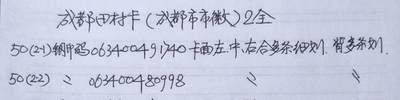 成都田村卡(成都市市徽)2全
50(2-1)钢甲码063400491740卡面左.中.右合多条细划.背多条划.
50(2-2) 〃 063400480998 〃 〃